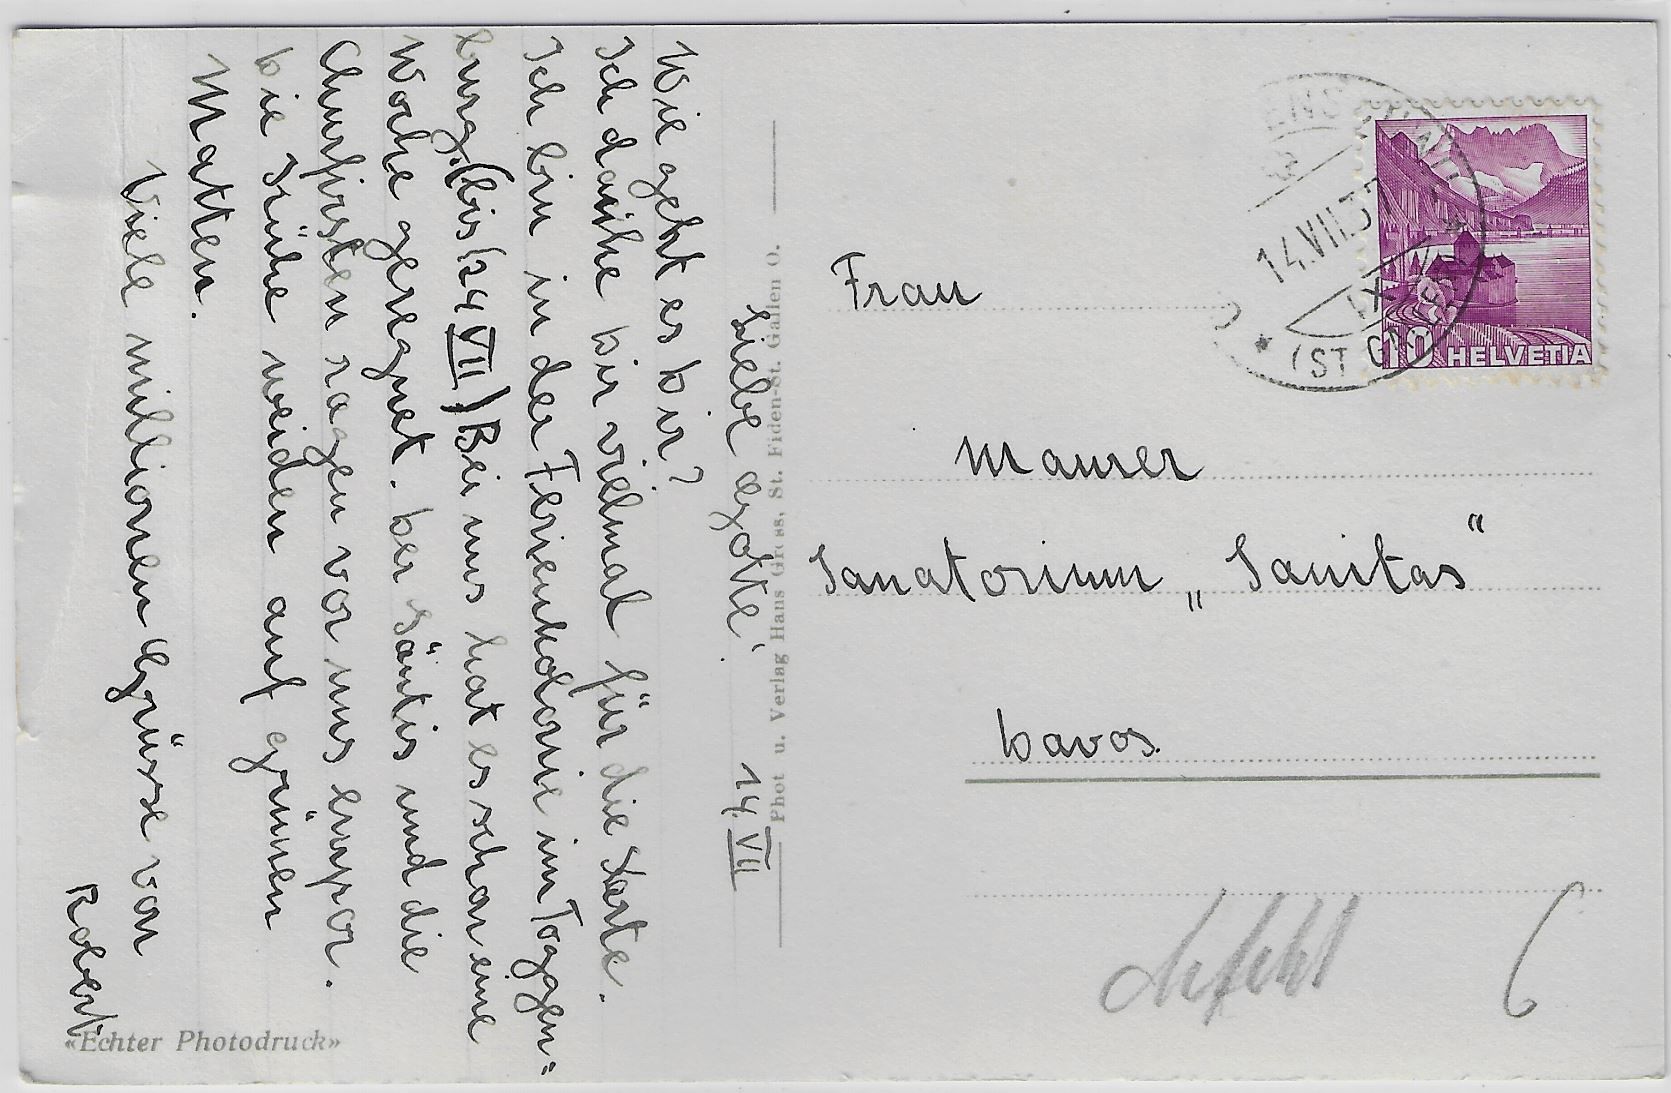 Liebe Gotte! 14. VII
Wie geht es Dir?
Ich danke Dir vielmal für die Karte.
Ich bin in der Ferienkolonie im Toggen=
burg. (bis 24 VII) Bei uns hat es schon eine
Woche geregnet. Der Säntis und die
Churfirsten ragen vor uns empor.
Die Kühe weiden auf grünen
Matten.
Viele millionen Grüsse von
Robert
«Echter Photodruck»
Phot u. Verlag Hans Gross, St. Fiden-St. Gallen O.
14.VII.37
IX
(ST. GALLEN)
10 HELVETIA
Frau
Maurer
Sanatorium „Sanitas“
Davos.
6